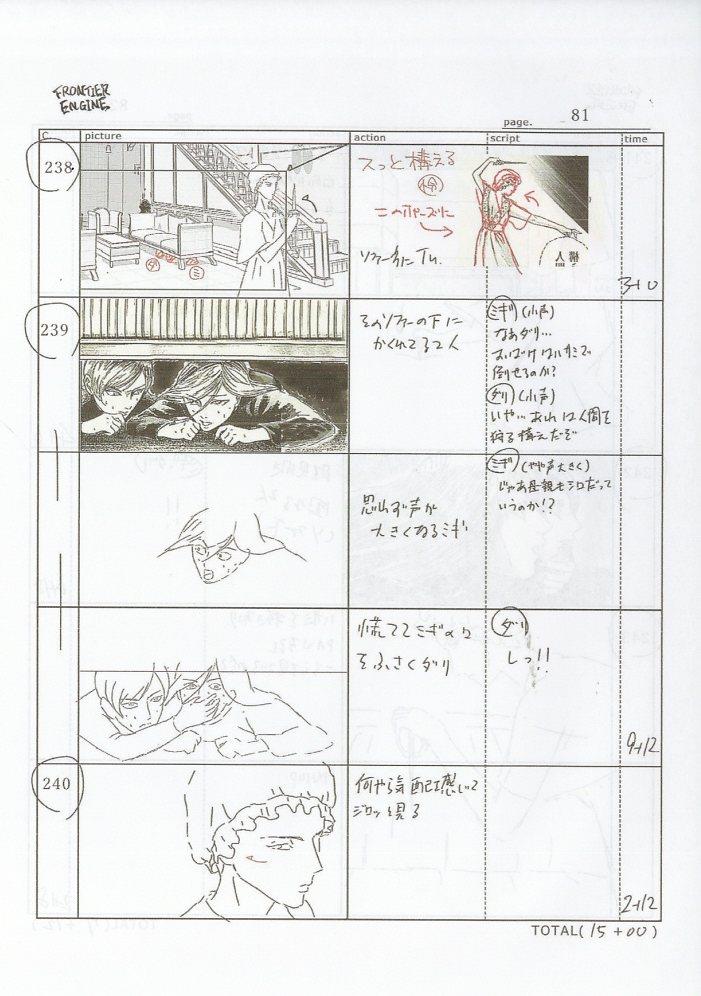 FRONTIER
ENGINE
page. 81
C. picture action script time
238
スッと構える
このポーズに
ソファー前にT.U.
ダ ミ
3+0
239
そのソファーの下に
かくれてる2人
ミギ(小声)
なあダリ…
おばけはハサミで
倒せるのか?
ダリ(小声)
いや…あれは人間を
狩る構えだぞ
思わず声が
大きくなるミギ
ミギ(やや声大きく)
じゃあ母親もシロだって
いうのか!?
慌ててミギの口
をふさぐダリ
ダリ
しっ!!
9+12
240
何やら気配を感じて
ジロッと見る
2+12
TOTAL(15+00)